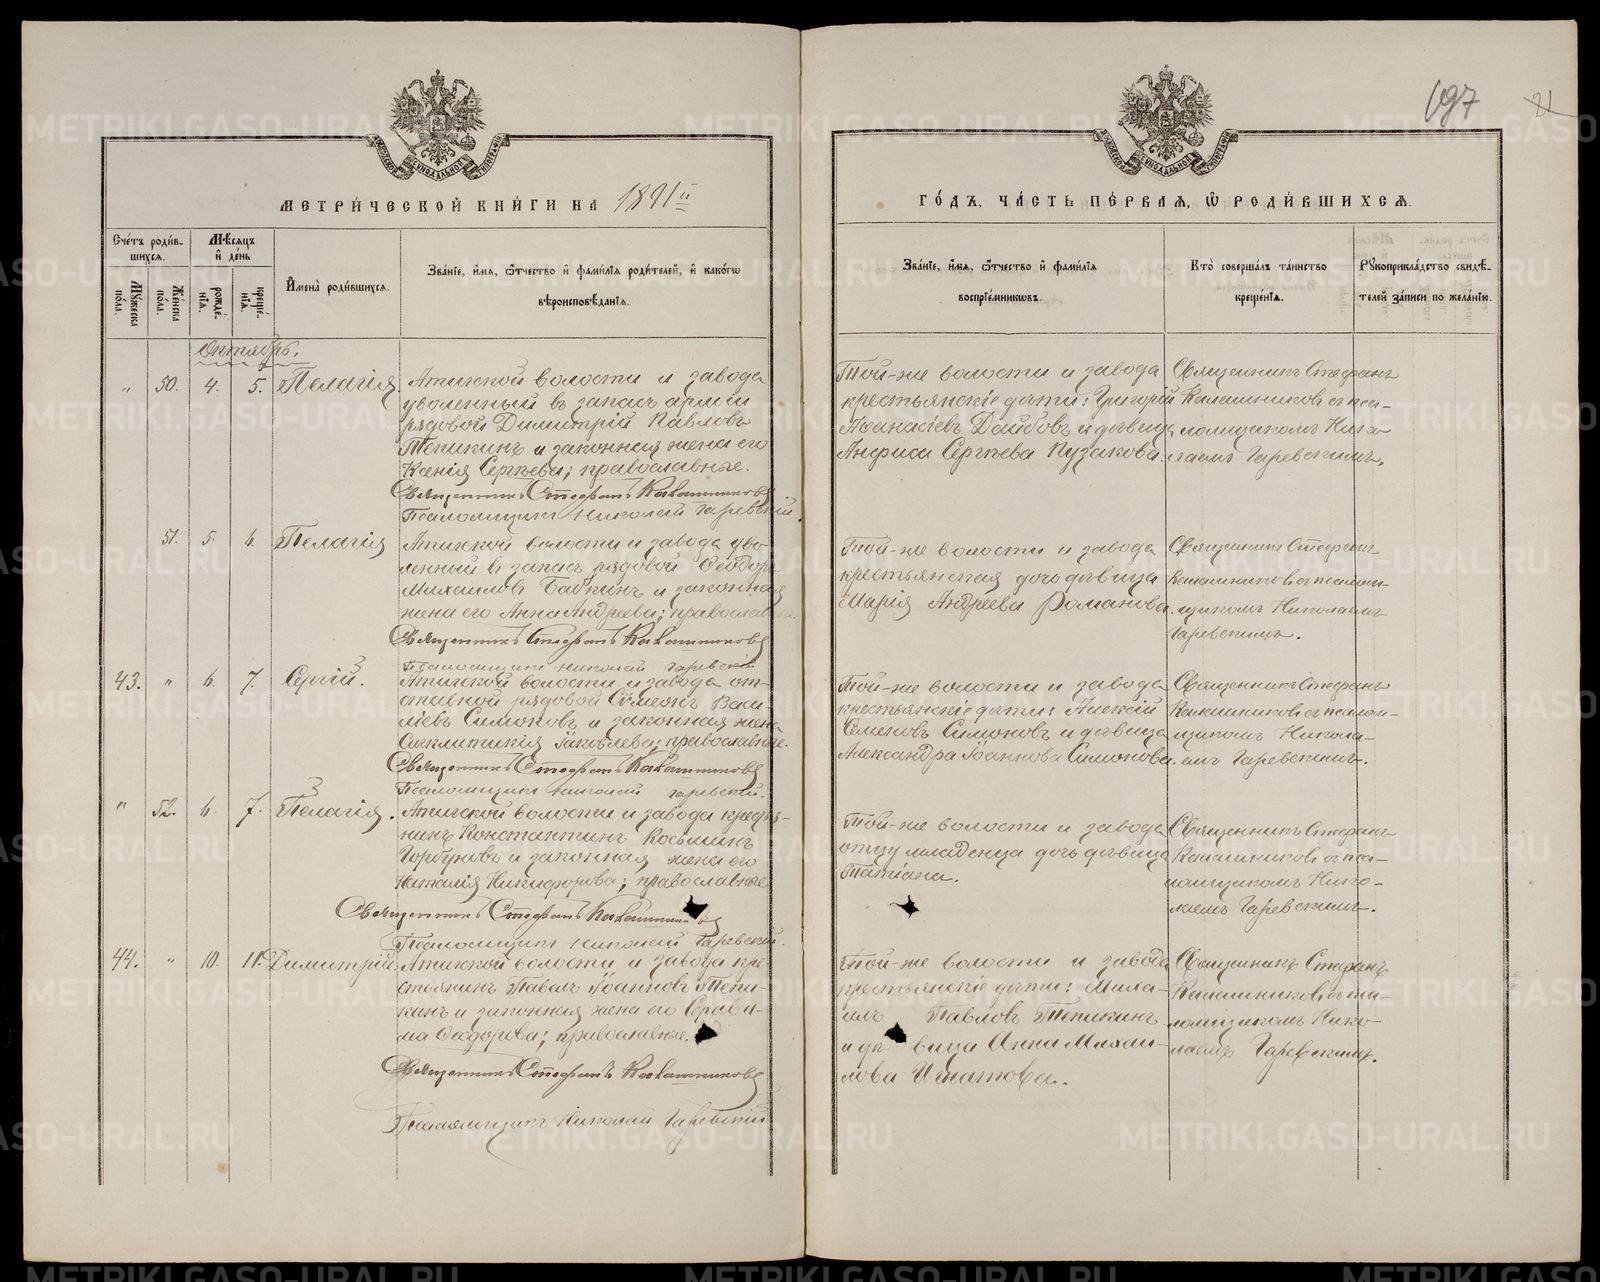 697
21
МЕТРИ́ЧЕСКОЙ КНИ́ГИ НА 1891й
ГО́ДЪ, ЧА́СТЬ ПЕ́РВАѦ, Ѿ РОДИ́ВШИХСѦ.
Сче́тъ роди́в-
шихсѧ.
Мѣ́сѧцъ
и҆ де́нь
Мꙋ́жеска пола̀.
Же́нска пола̀.
рожде́-
нїѧ.
креще́-
нїѧ.
И҆мена̀ роди́вшихсѧ.
Зва́нїе, и҆́мѧ, ѻ҆́тчество и҆ фами́лїѧ роди́телей, и҆ како́гѡ
вѣроисповѣ́данїѧ.
Зва́нїе, и҆́мѧ, ѻ҆́тчество и҆ фами́лїѧ
воспрїе́мникѡвъ.
Кто̀ соверша́лъ та́инство
креще́нїѧ.
Рꙋкоприкла́дство свидѣ́-
телей за́писи по жела́нїю.
Октябрь.
„ 50. 4. 5. Пелагія
Атигской волости и завода
уволенный въ запасъ арміи
рядовой Димитрій Павловъ
Тепикинъ и законная жена его
Ксенія Сергѣева; православные.
Священникъ Стефанъ Калашниковъ
Псаломщикъ Николай Гаревскій.
Той-же волости и завода
крестьянскіе дѣти: Григорій
Аѳанасіевъ Дайбовъ и дѣвица
Анфиса Сергѣева Пузакова.
Священникъ Стефанъ
Калашниковъ съ пса-
ломщикомъ Нико-
лаемъ Гаревскимъ.
51. 5. 6. Пелагія
Атигской волости и завода уво-
ленный въ запасъ рядовой Ѳеодоръ
Михаиловъ Бабкинъ и законная
жена его Анна Андреева; православные.
Священникъ Стефанъ Калашниковъ
Псаломщикъ Николай Гаревскій
Той-же волости и завода
крестьянская дочь дѣвица
Марія Андреева Романова.
Священникъ Стефанъ
Калашниковъ съ псалом-
щикомъ Николаемъ
Гаревскимъ.
43. „ 6. 7. Сергій.
Атигской волости и завода от-
ставной рядовой Сѷмеонъ Васи-
ліевъ Симоновъ и законная жена
Сигклитикія Іаковлева; православные.
Священникъ Стефанъ Калашниковъ
Псаломщикъ Николай Гаревскій.
Той-же волости и завода
крестьянскіе дѣти: Алексій
Семеновъ Симоновъ и дѣвица
Александра Іоаннова Симонова.
Священникъ Стефанъ
Калашниковъ съ псалом-
щикомъ Никола-
емъ Гаревскимъ.
„ 52. 6. 7. Пелагія.
Атигской волости и завода крестья-
нинъ Константинъ Косьминъ
Горбуновъ и законная жена его
Наталія Никифорова; православные.
Священникъ Стефанъ Калашниковъ
Псаломщикъ Николай Гаревскій.
Той-же волости и завода
отцу младенца дочь дѣвица
Татіана.
Священникъ Стефанъ
Калашниковъ съ пса-
ломщикомъ Нико-
лаемъ Гаревскимъ.
44. „ 10. 11. Димитрій
Атигской волости и завода кре-
стьянинъ Павелъ Іоанновъ Тепи-
кинъ и законная жена его Серафи-
ма Ѳеодорова; православные.
Священникъ Стефанъ Калашниковъ
Псаломщикъ Николай Гаревскій
Той-же волости и завода
крестьянскіе дѣти: Миха-
илъ Павловъ Тепикинъ
и дѣвица Анна Михаи-
лова Игнатова.
Священникъ Стефанъ
Калашниковъ съ пса-
ломщикомъ Нико-
лаемъ Гаревскимъ.